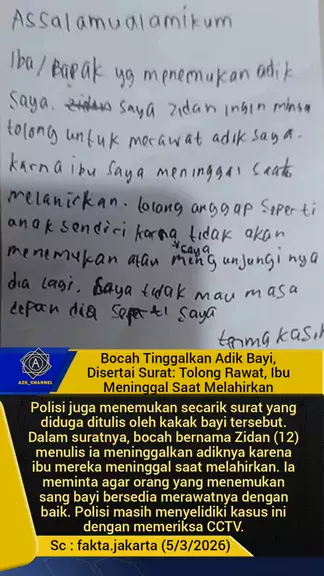 Assalamualamikum
Iba/Bapak yg menemukan adik
saya. zidan saya zidan ingin minta
tolong untuk merawat adik saya.
karna ibu saya meninggal saat
melahirkan. tolong anggap seperti
anak sendiri karna tidak akan
saya
menemukan atau mengunjungi nya
dia lagi. saya tidak mau masa
depan dia seperti saya
terima kasih
A
AZK_CHANNEL
Bocah Tinggalkan Adik Bayi,
Disertai Surat: Tolong Rawat, Ibu
Meninggal Saat Melahirkan
Polisi juga menemukan secarik surat yang
diduga ditulis oleh kakak bayi tersebut.
Dalam suratnya, bocah bernama Zidan (12)
menulis ia meninggalkan adiknya karena
ibu mereka meninggal saat melahirkan. Ia
meminta agar orang yang menemukan
sang bayi bersedia merawatnya dengan
baik. Polisi masih menyelidiki kasus ini
dengan memeriksa CCTV.
Sc : fakta.jakarta (5/3/2026)